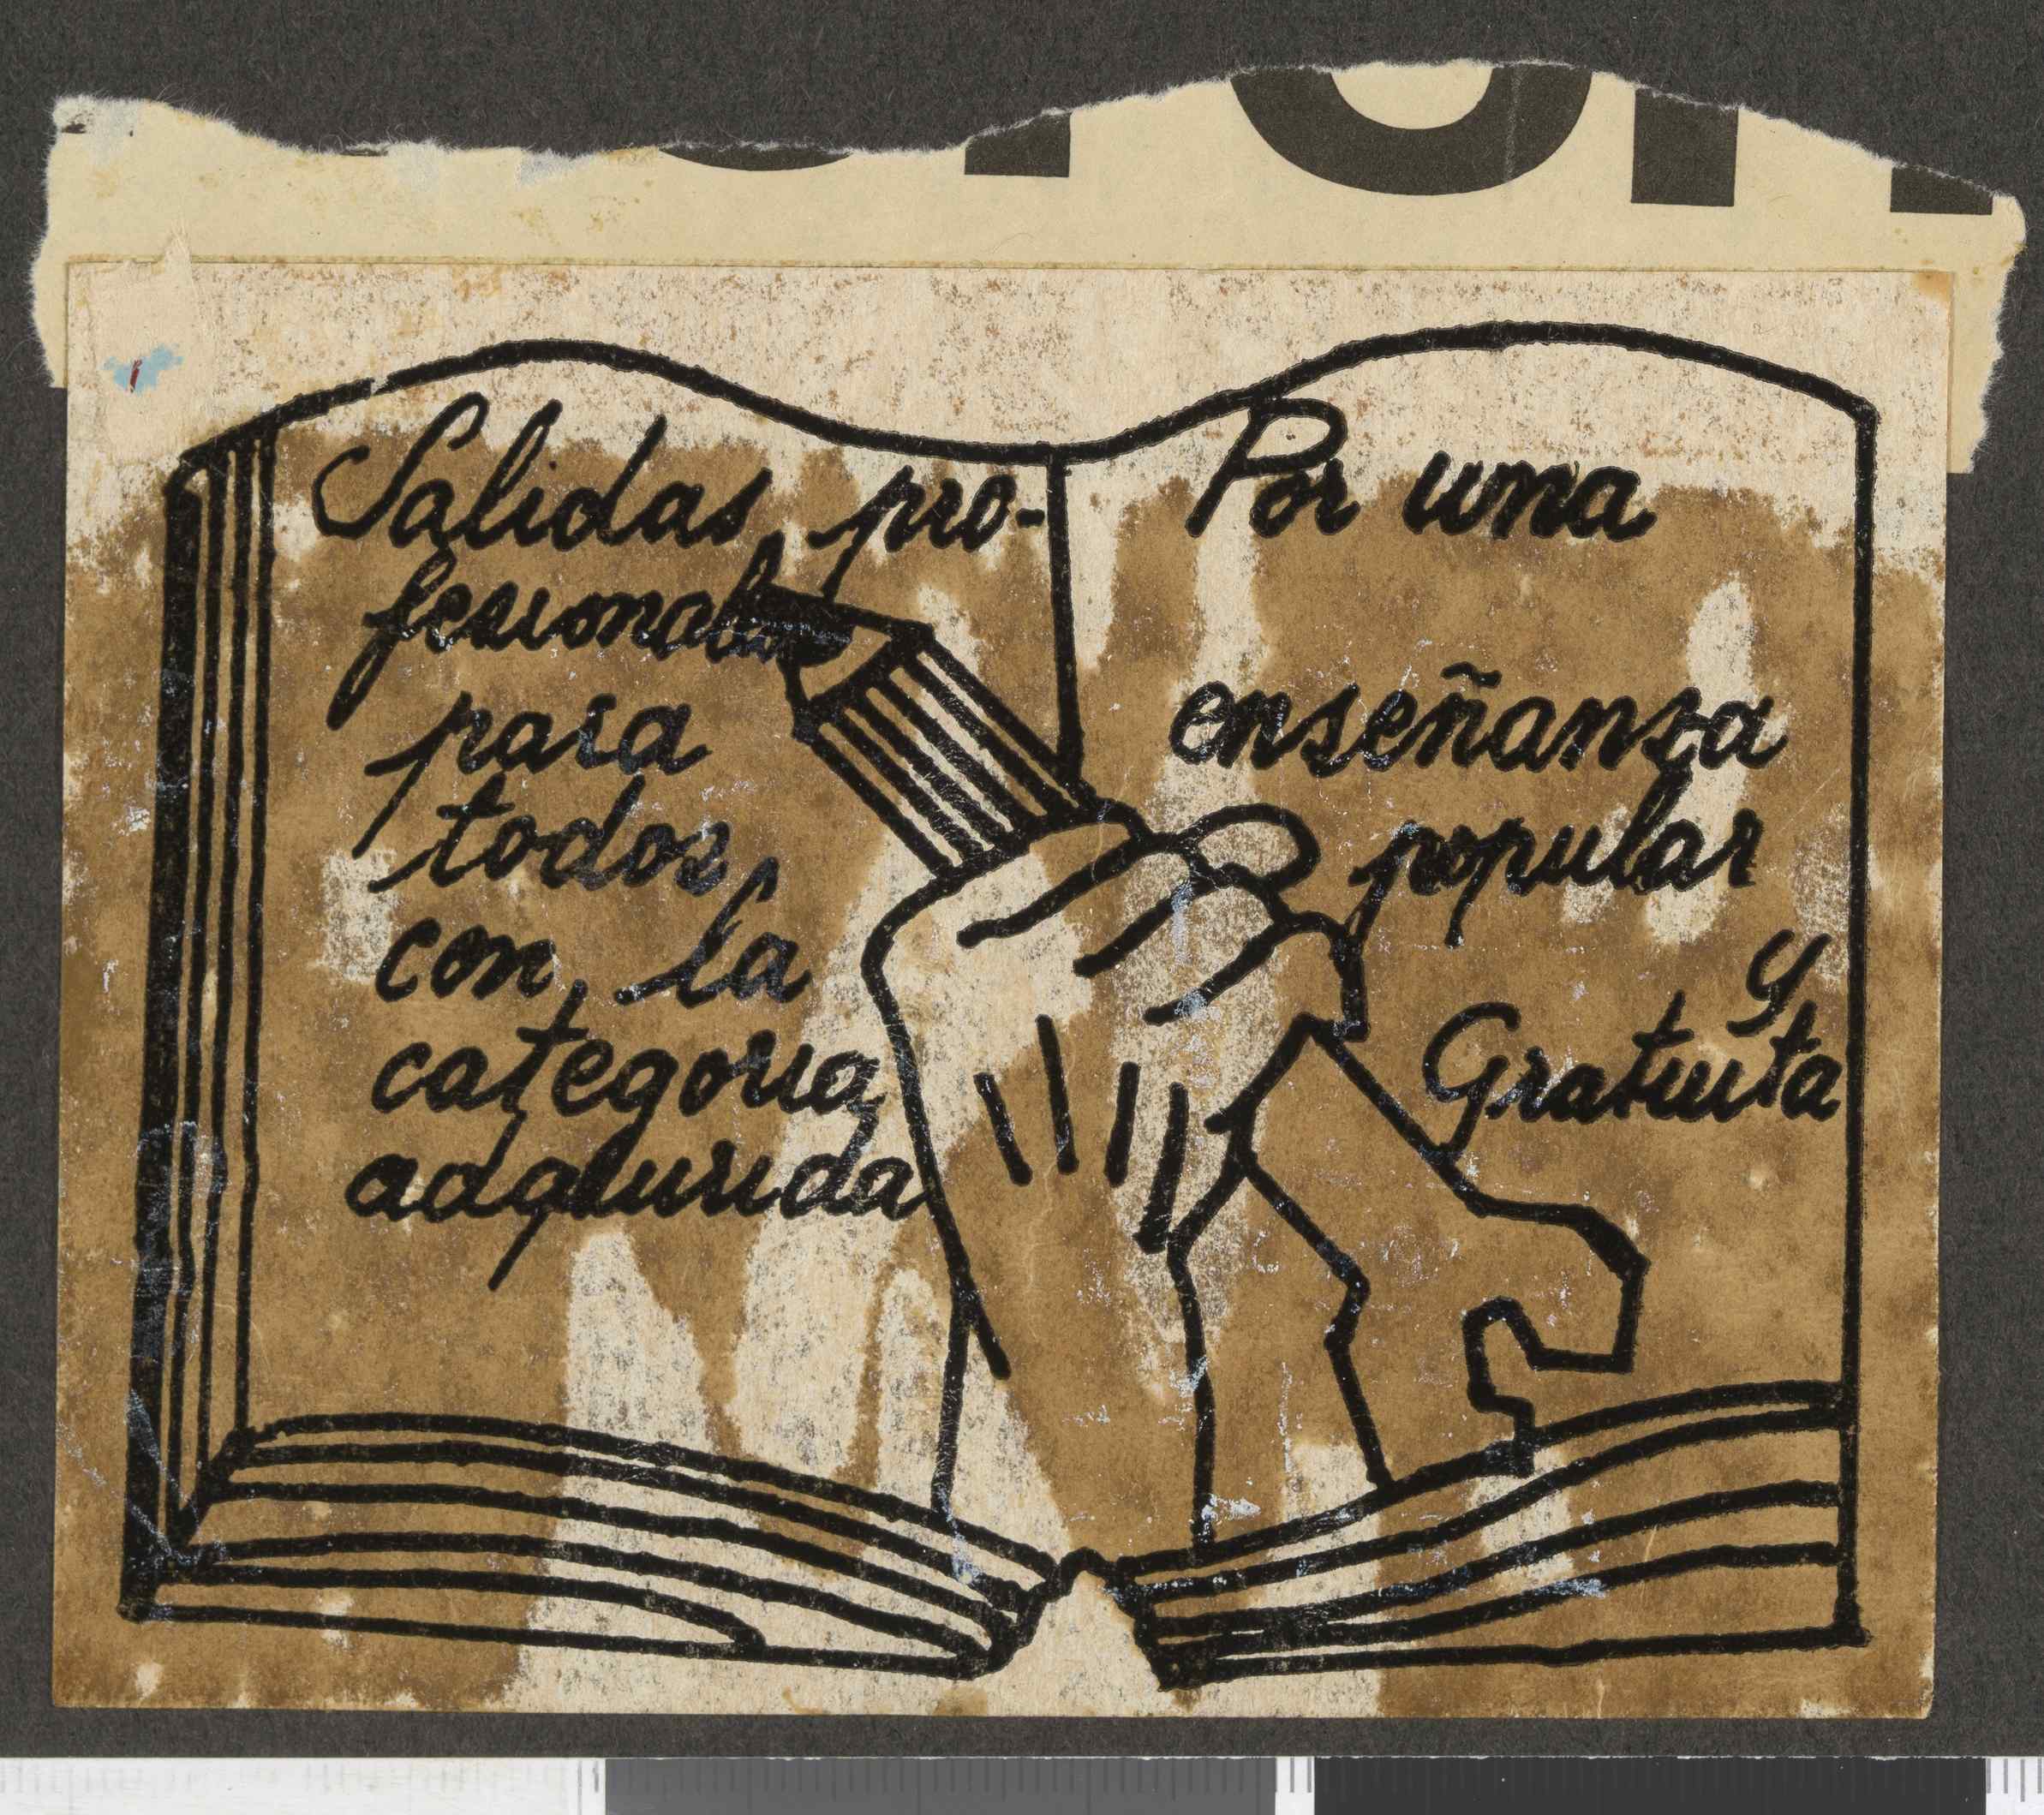 Salidas pro-
fesionales
para
todos
con la
categoria
adquirida
Por una
enseñansa
popular
y
Gratuita